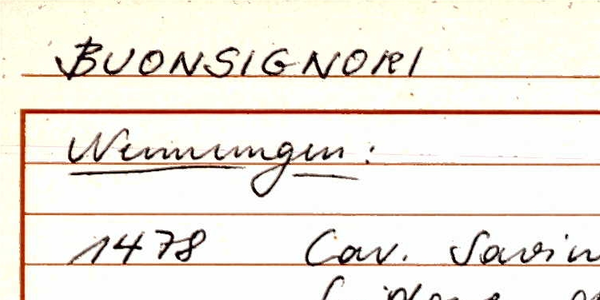 BUONSIGNORI
Nennungen:
1478 Cav. Savin